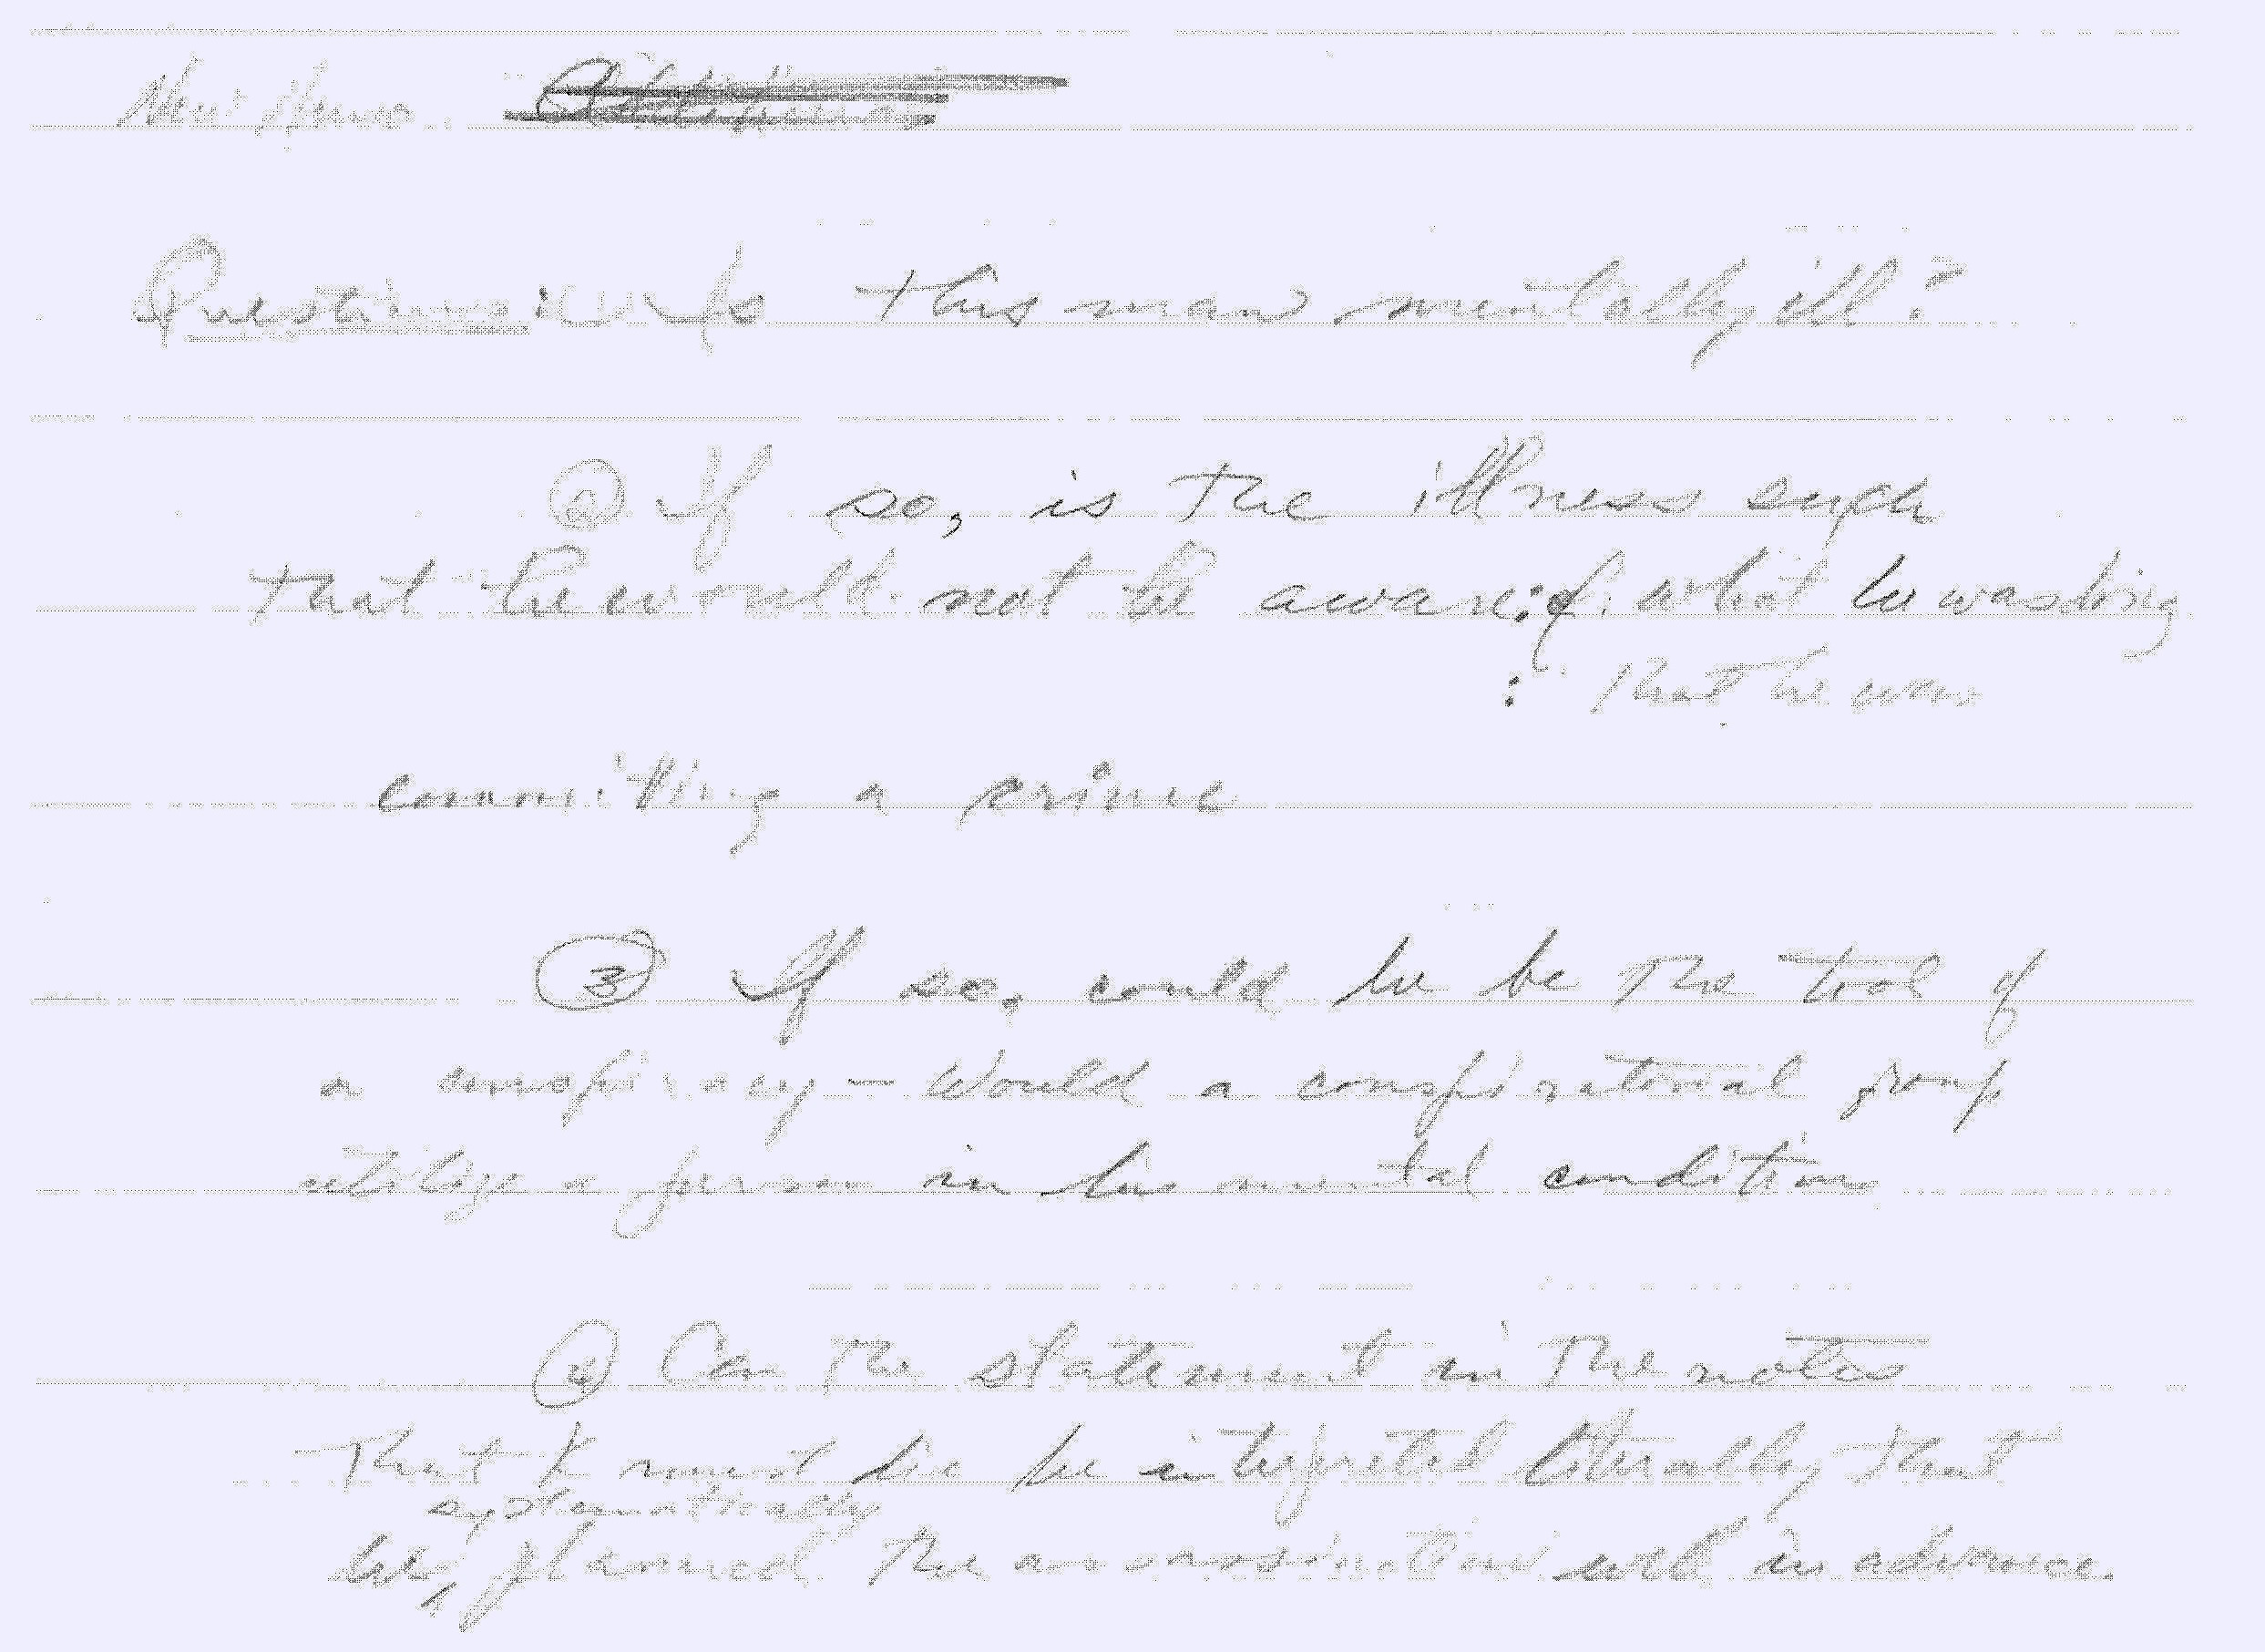 Questions: (1) Is this man mentally ill?
(2) If so, is the illness such
that he would not be aware: of: what he was doing
: that he was
committing a crime
(3) If so, could he be the tool of
a conspiracy - Would a conspiratorial group
utilize a person in his mental condition
(4) Can the statement in the notes
that K must die be interpreted literally that
systematically
he planned the assassination well in advance.